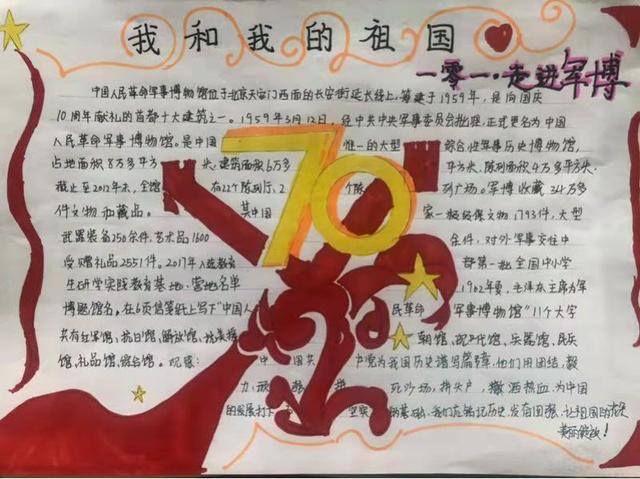 我和我的祖国
一零一·走进军博
中国人民革命军事博物馆位于北京天安门西面的长安街延长线上,筹建于1959年,是向国庆
10周年献礼的首都十大建筑之一。1959年3月12日,经中共中央军事委员会批准,正式更名为中国
人民革命军事博物馆。是中国 惟一的大型 综合性军事历史博物馆,
占地面积8万多平方 米,建筑面积6万多 平方米,陈列面积4万多平方米.
截止至2012年末,全馆 有22个陈列厅,2 个陈 列广场。军博收藏34万多
件文物和藏品。 其中国 家一级 文物1793件,大型
武器装备250余件,艺术品1600 余件,对外军事交往中
受赠礼品2551件。2017年入选教育 部第一批全国中小学
生研学实践教育基地、营地名单 毛泽东主席为军
博题馆名。在6页信笺纸上写下"中国人 民革命 军事博物馆"11个大字
共有红军馆,抗日馆,解放馆, 朝馆, 代馆,兵器馆,民兵
馆,礼品馆,综合馆。观感: 中国共 中党为我国历史谱写篇章,他们用团结,毅
力, 死沙场,抛头卢,撒洒热血,为中国
的发展打下 坚实 的基础,我们应铭记历史,发奋图强,让祖国的
美丽绽放!
70